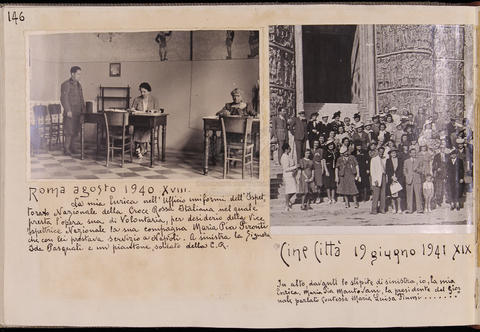 146
Roma agosto 1940 XVIII.
La mia Enrica nell'Ufficio uniformi dell'Ispet,
torato Nazionale della Croce Rossa Italiana nel quale
presta l'opera sua di Volontaria, per desiderio della Vice
Ispettrice Nazionale la sua compagna Maria Pia
che con lei prestava servizio a Napoli. A sinistra la Signora
Ide Pasquali e un piantone, soldato della C.R.
Cine Città 19 giugno 1941 XIX
In alto, davanti lo stipite di sinistra, io, la mia
Enrica, Maria Pia la presidente del
Contessa Maria Luisa